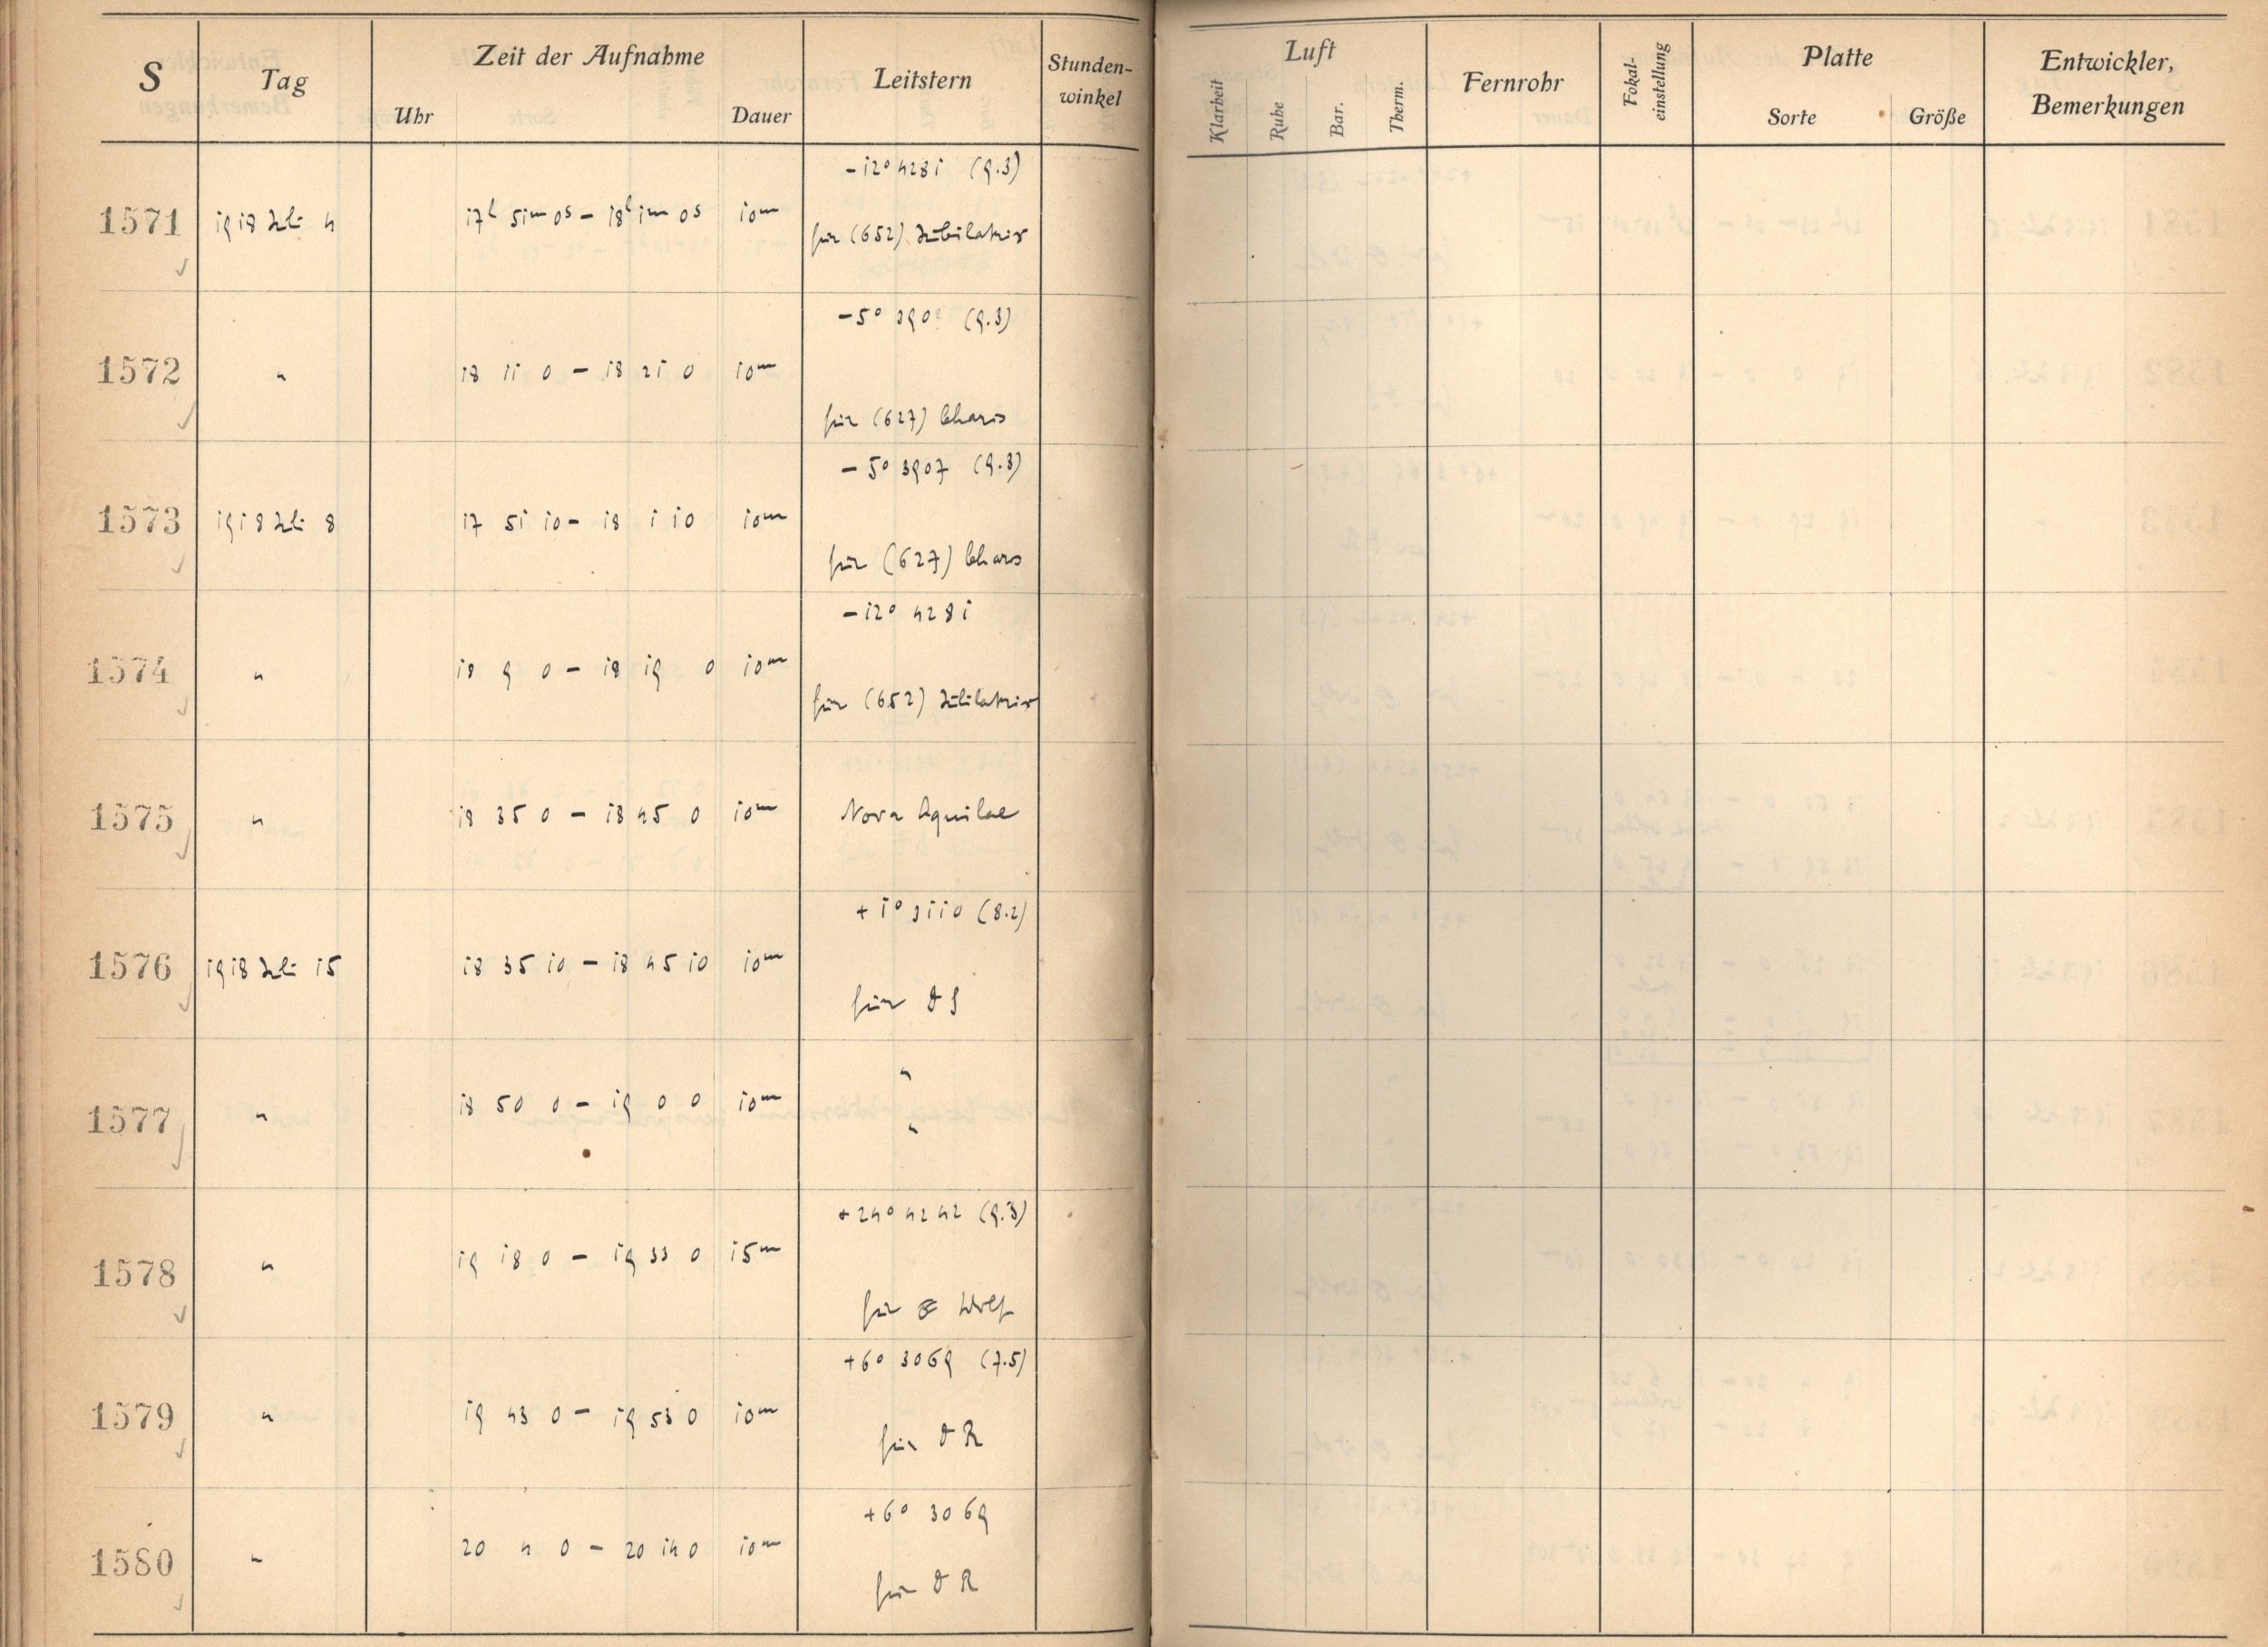 S Tag Zeit der Aufnahme Leitstern Stunden-winkel Luft Fernrohr Fokal-einstellung Platte Entwickler, Bemerkungen
Uhr Dauer Klarheit Ruhe Bar. Therm. Sorte Größe
-12° 4281 (9.3)
1571 1918 Juli 4 17h 51m 0s - 18h 1m 0s 10m
für (652) Jubilatrix
-5° 390 (9.3)
1572 " 18 11 0 - 18 21 0 10m
für (627) Charis
-5° 3907 (9.3)
1573 1918 Juli 8 17 51 10 - 18 1 10 10m
für (627) Charis
-12° 4281
1574 " 18 9 0 - 18 19 0 10m
für (652) Jubilatrix
1575 " 18 35 0 - 18 45 0 10m Nova Aquilae
+1° 3110 (8.2)
1576 1918 Juli 15 18 35 10 - 18 45 10 10m
für
"
1577 " 18 50 0 - 19 0 0 10m
"
+24° 4242 (9.3)
1578 " 19 18 0 - 19 33 0 15m
für Wolf
+6° 3069 (7.5)
1579 " 19 43 0 - 19 53 0 10m
für
+6° 3069
1580 " 20 4 0 - 20 14 0 10m
für